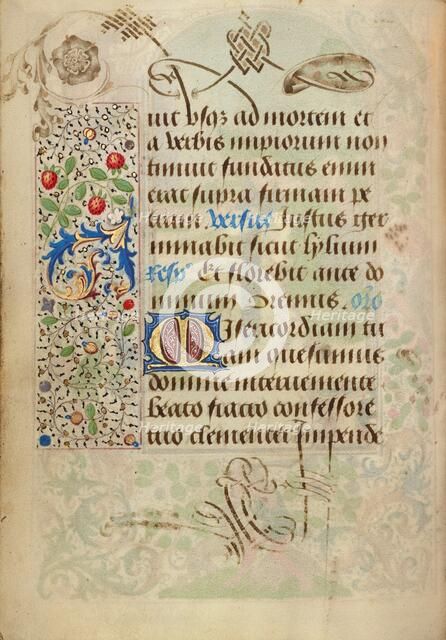 uit usqz ad mortem et
a verbis impiorum non
timuit fundatus enim
erat supra firmam pe
tram versus Justus ger
minabit sicut lylium
resp Et florebit ante do
minum Oremus. oro
Misericordiam tu
am quesumus
domine interveniente
beato fiacro confessore
tuo clementer impende
Heritage Images